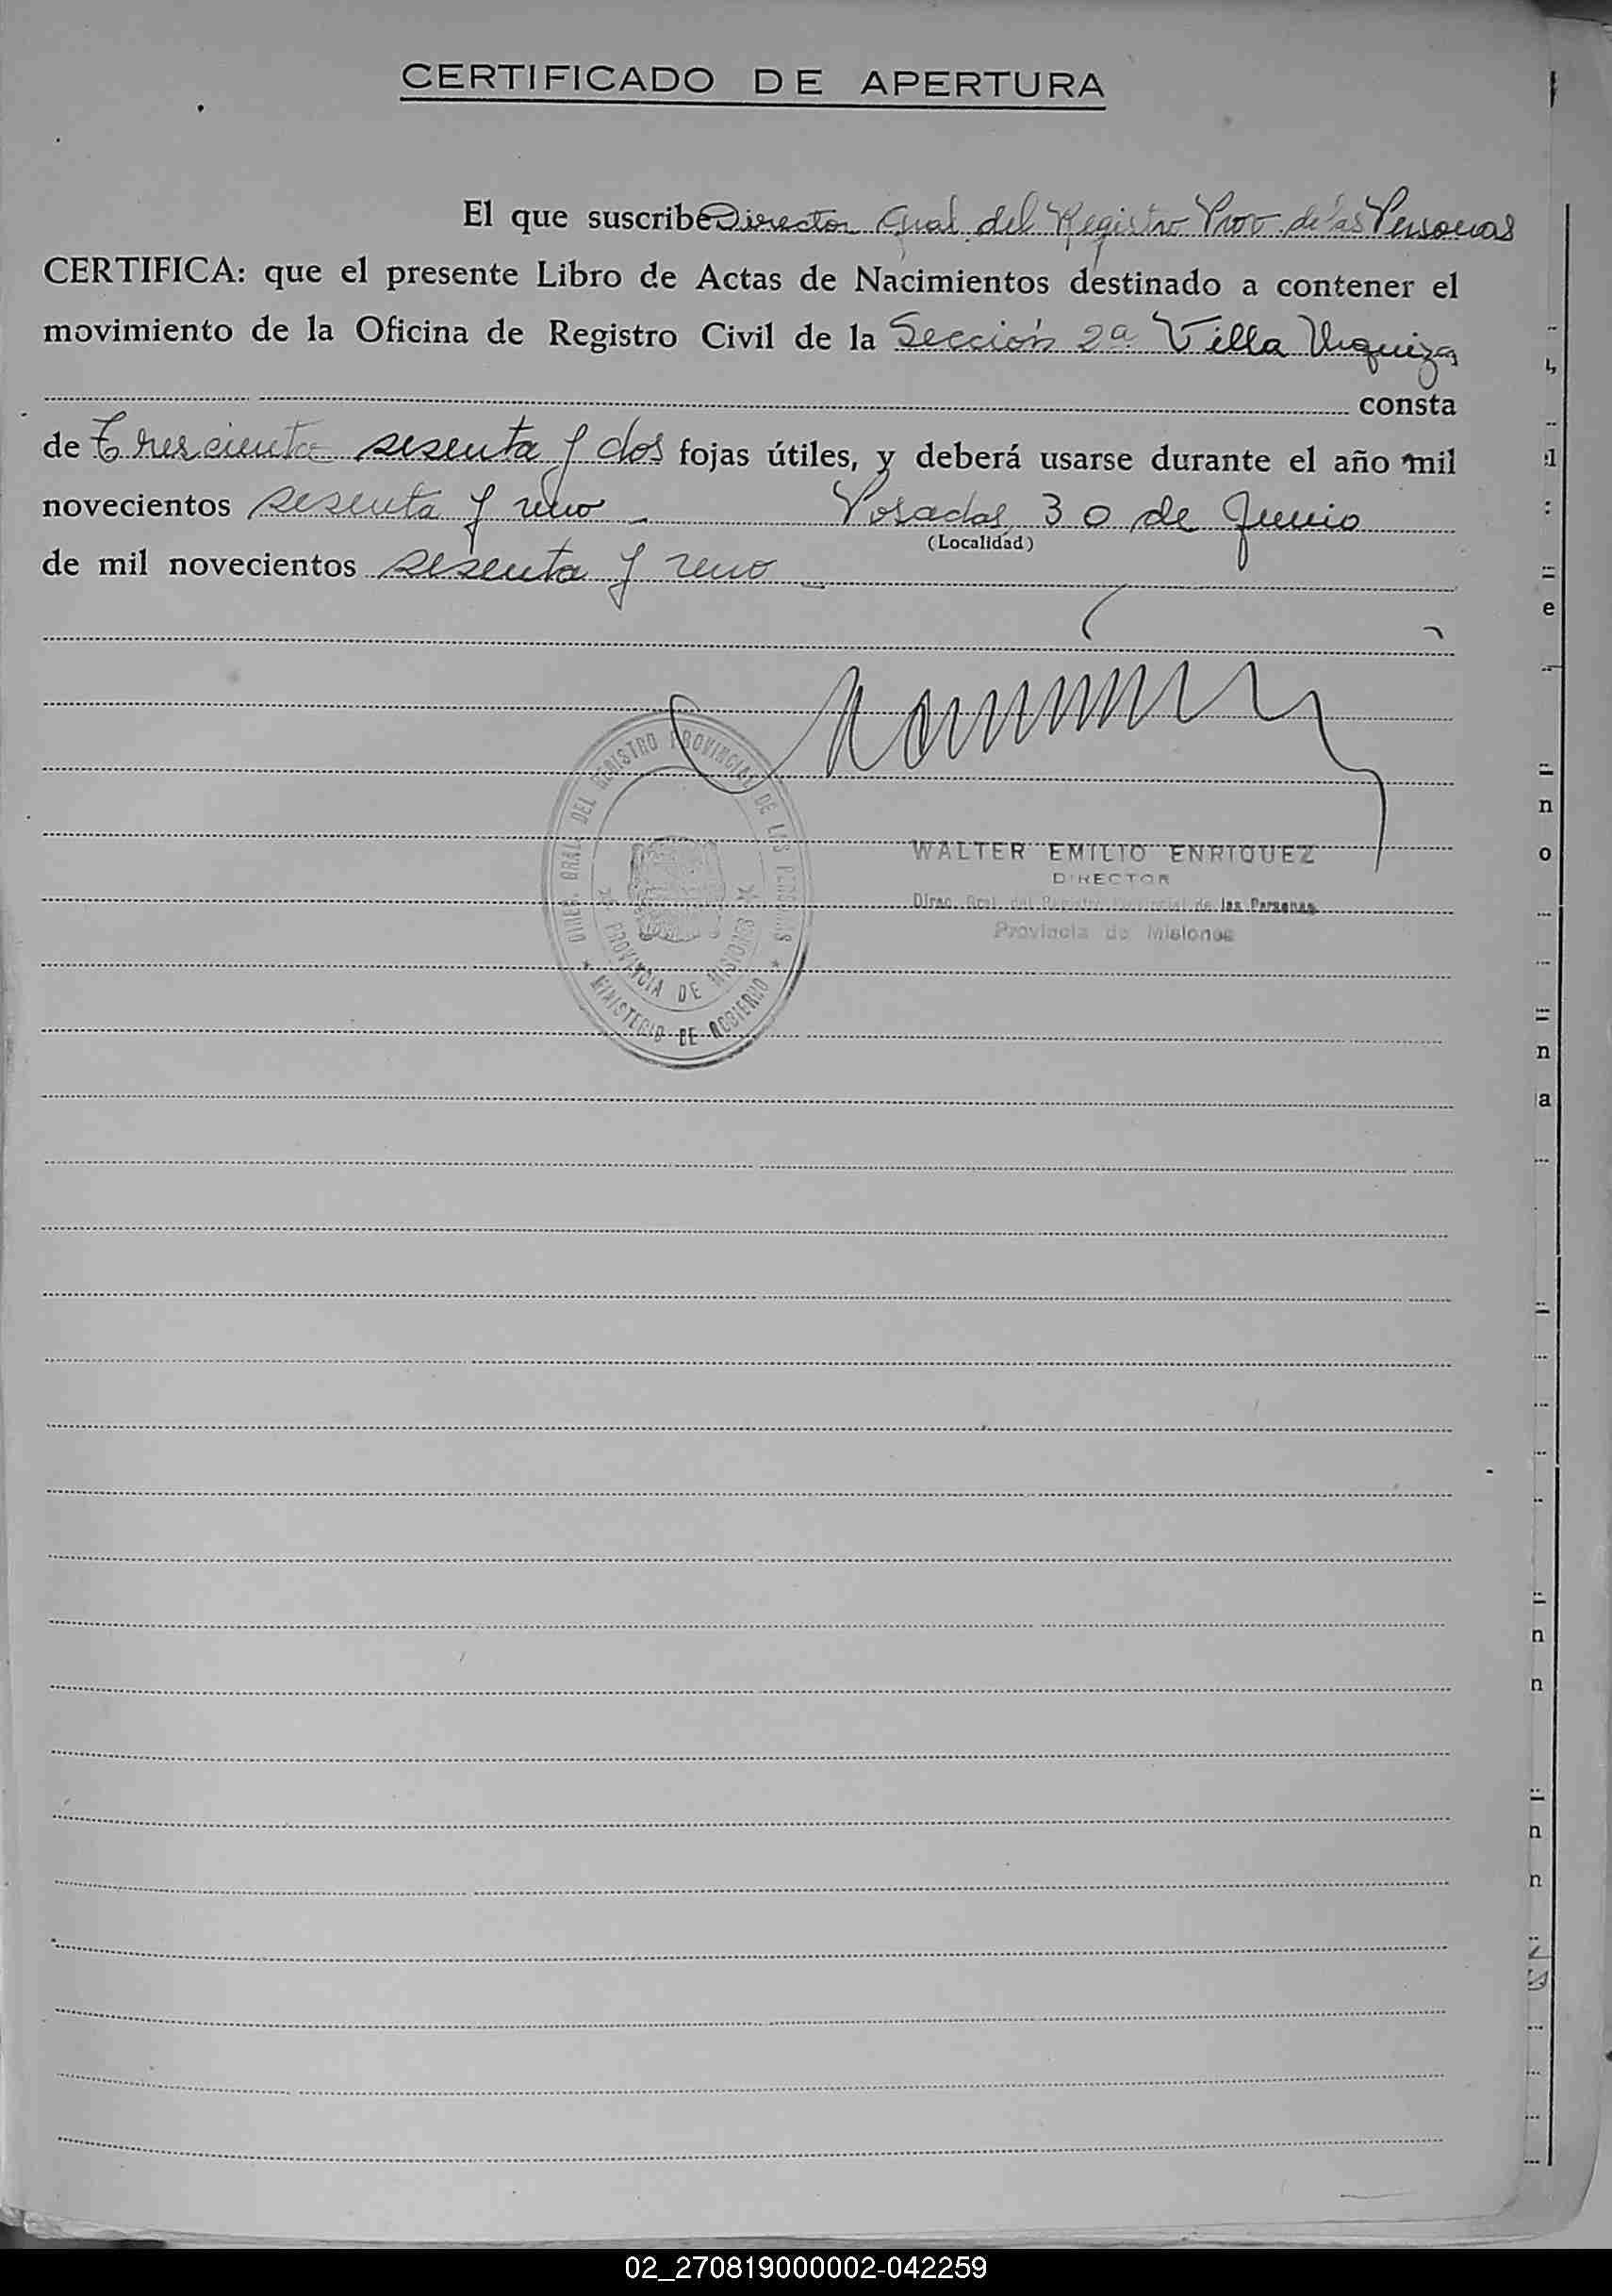 CERTIFICADO DE APERTURA
El que suscribe Director Gral. del Registro Prov. de las Personas
CERTIFICA: que el presente Libro de Actas de Nacimientos destinado a contener el
movimiento de la Oficina de Registro Civil de la Sección 2a Villa Urquiza
consta
de trescienta sesenta y dos fojas útiles, y deberá usarse durante el año mil
novecientos sesenta y uno Posadas, 30 de Junio
(Localidad)
de mil novecientos sesenta y uno
DIREC. GRAL. DEL REGISTRO PROVINCIAL DE LAS PERSONAS
PROVINCIA DE MISIONES
* MINISTERIO DE GOBIERNO *
WALTER EMILIO ENRIQUEZ
DIRECTOR
Direc. Gral. del Registro Provincial de las Personas
Provincia de Misiones
02_270819000002-042259